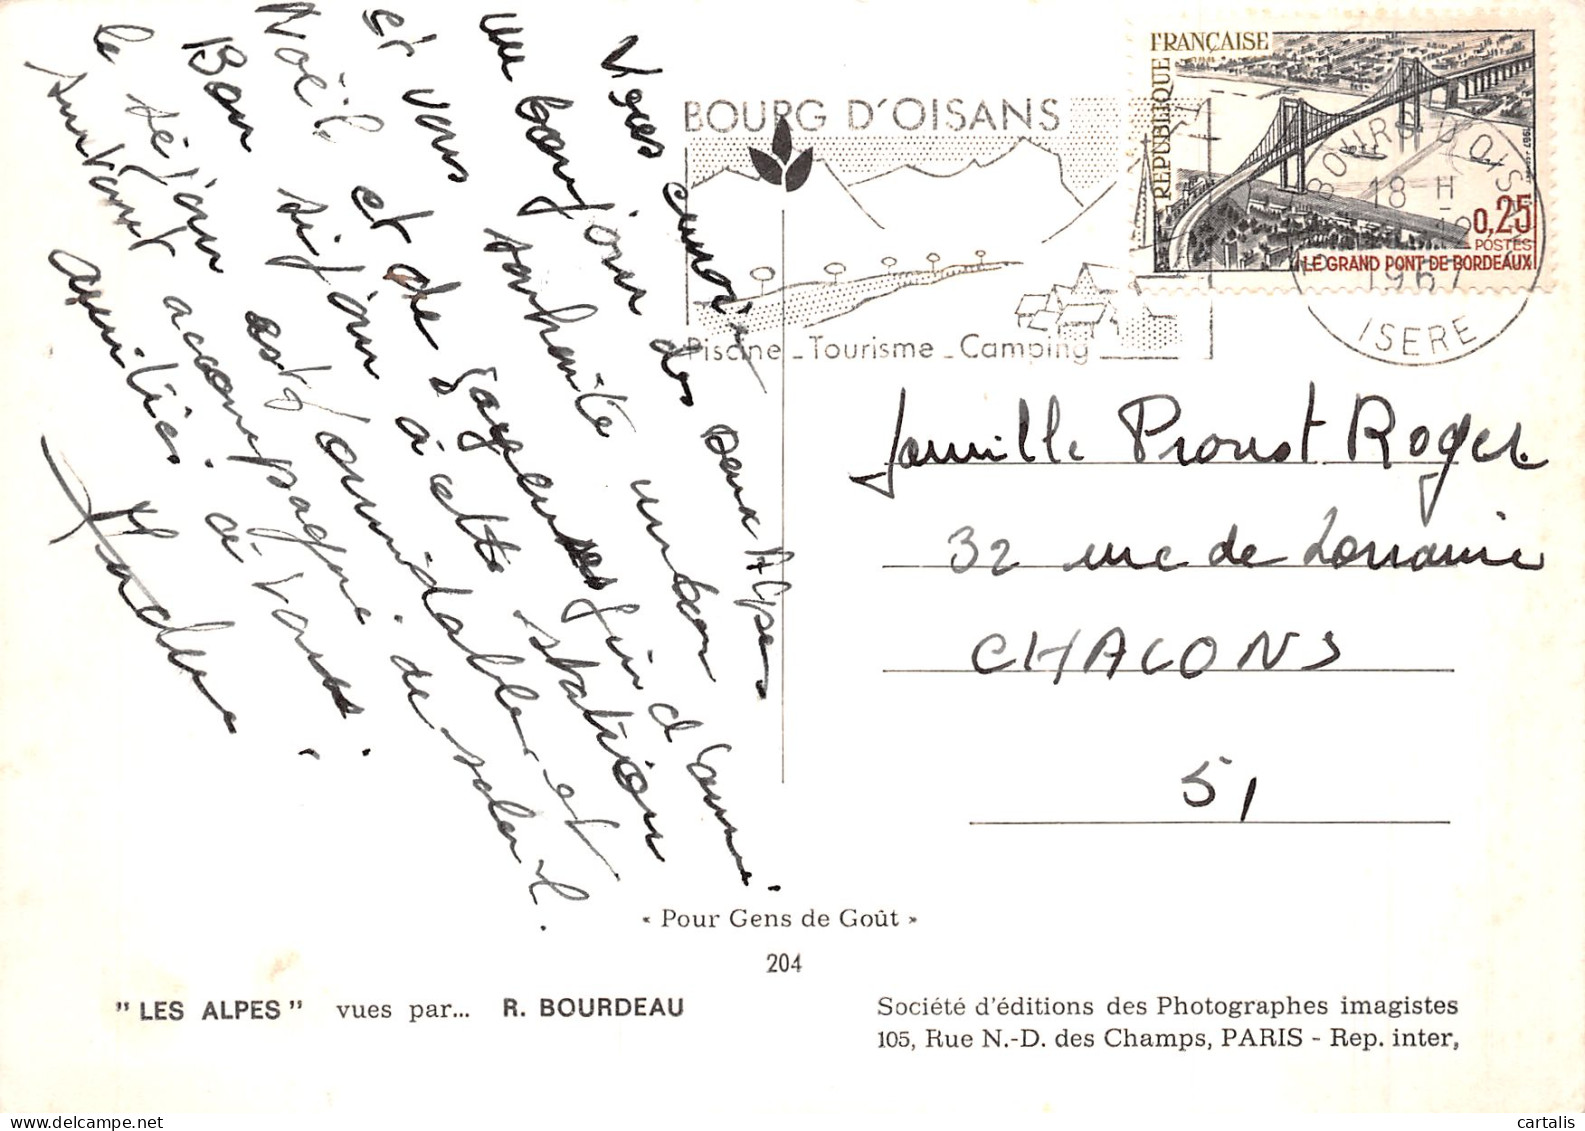 Vous envoie des deux Alpes
un bonjour souhaite un bon
et vous joyeuses fin d'année.
Noël et de
Bon séjour à cette station
le séjour est formidable et
Surtout accompagné de soleil.
amitiés à tous.
BOURG D'OISANS
Piscine - Tourisme - Camping
RÉPUBLIQUE FRANÇAISE
0,25
POSTES
LE GRAND PONT DE BORDEAUX
BOURG D'OISANS
18 H
1967
ISERE
famille Proust Roger
32 rue de Lorraine
CHALONS
51
« Pour Gens de Goût »
204
"LES ALPES" vues par... R. BOURDEAU
Société d'éditions des Photographes imagistes
105, Rue N.-D. des Champs, PARIS - Rep. inter,
cartalis